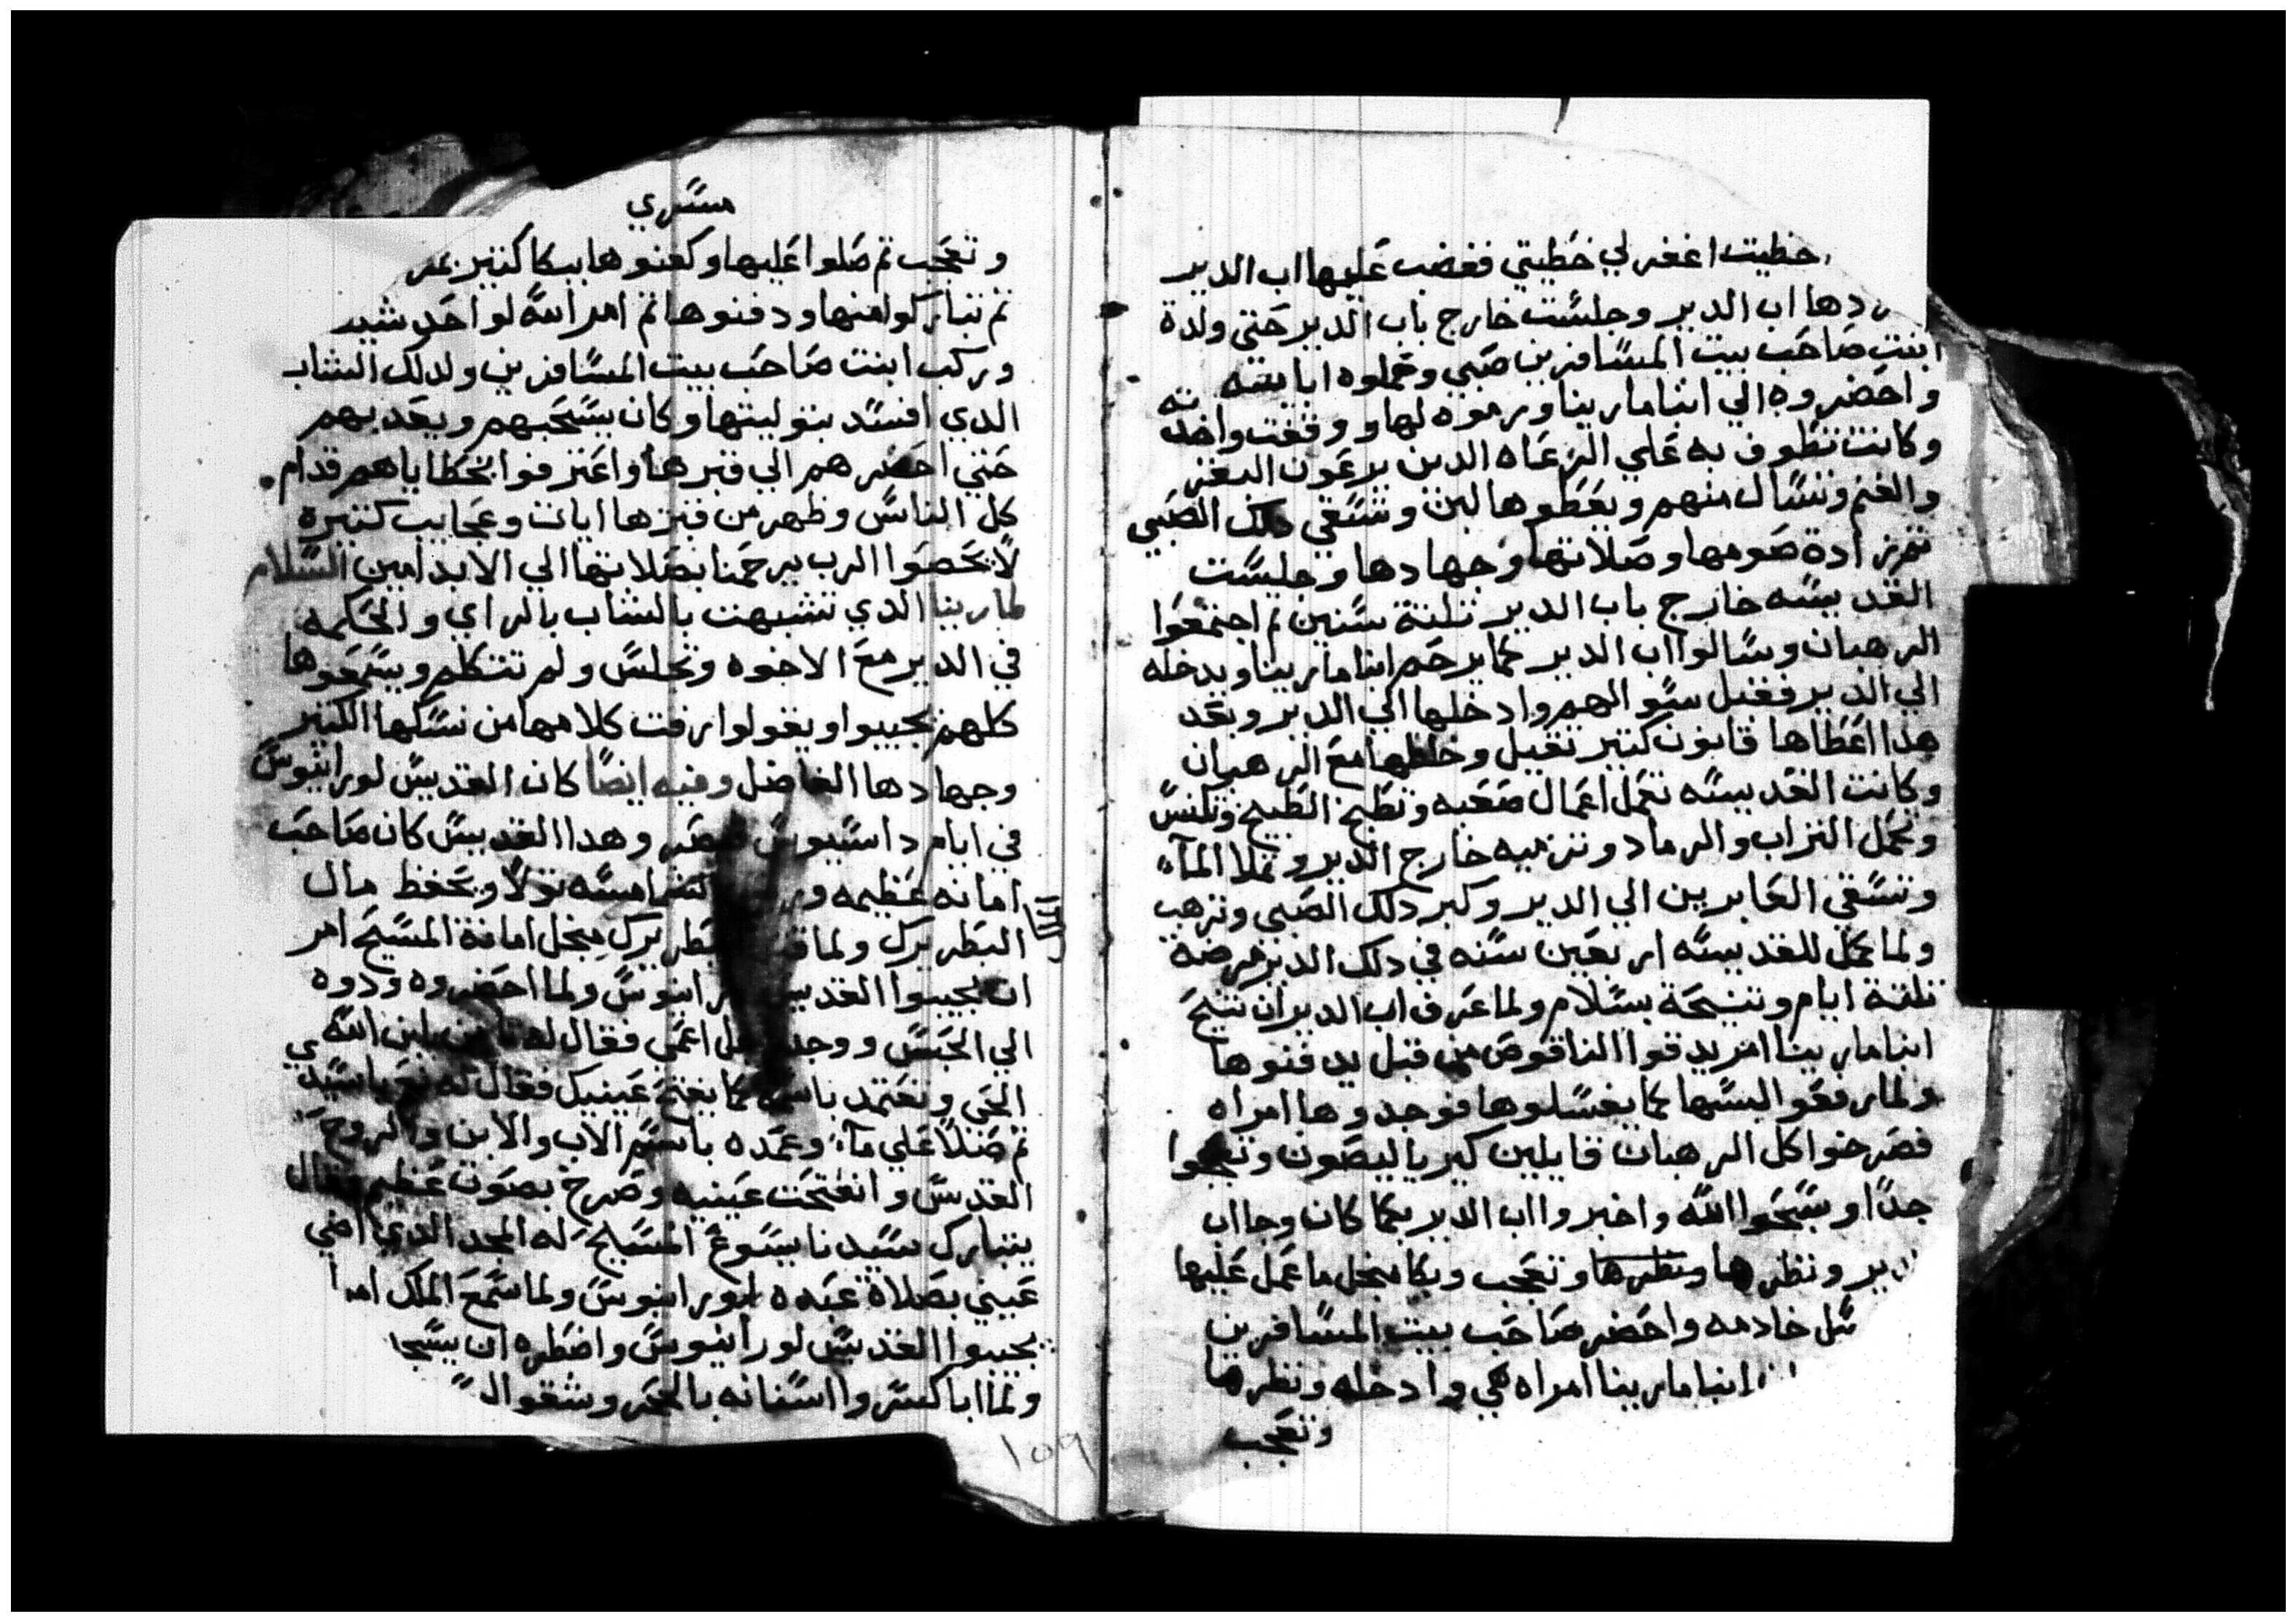 خطيت اغفر لي خطيتي فغضب عليها اب الدير
دها اب الدير وجلست خارج باب الدير حتي ولدة
ابنت صاحب بيت المسافرين صبي وحملوه ابا بنته
واحضروه الي ابنا مارينا ورموه لها ووقفت واخدته
وكانت تطوف به علي الرعاه الدين يرعون البقر
والغنم وتسال منهم ويعطوها لبن وتسقي دلك الصبي
تم زادة صومها وصلاتها وجهادها وجلست
القديسه خارج باب الدير تلتة سنين تم اجتمعوا
الرهبان وسالوا اب الدير كما يرحم ابنا مارينا ويدخله
الي الدير فقبل سوالهم وادخلها الي الدير وبعد
هدا اعطاها قانون كتير تقيل وخلطها مع الرهبان
وكانت القديسه تعمل اعمال صعبه وتطبخ الطبيخ وتكنس
وتحمل التراب والرماد وترميه خارج الدير وتملا المآء
وتسقي العابرين الي الدير وكبر دلك الصبي وترهب
ولما كمل للقديسه اربعين سنه في دلك الدير مرضة
تلتة ايام وتنيحة بسلام ولما عرف اب الدير ان تنيح
ابنا مارينا امر يدقوا الناقوص من قبل يدفنوها
ولما رفعوا لبسها كما يغسلوها فوجدوها امراه
فصرخوا كل الرهبان قايلين كيرياليصون وتعجبوا
جدا وسبحوا الله واخبروا اب الدير بكما كان وجا اب
دير ونظرها ونظرها وتعجب وبكا منجل ما عمل عليها
خادمه واحضر صاحب بيت المسافرين
ابنا مارينا امراه هي وادخله ونظرها
وتعجب
مسري
وتعجب تم صلوا عليها وكفنوها ببكا كتير
تم تباركوا منها ودفنوها تم امر الله لواحد شيد
وركب ابنت صاحب بيت المسافرين ولدلك الشاب
الدي افسد بتوليتها وكان يسحبهم ويعدبهم
حتي احضرهم الي قبرها واعترفوا بخطاياهم قدام
كل الناس وظهر من قبرها ايات وعجايب كتيرة
لا يحصوا الرب يرحمنا بصلاتها الي الابد امين السلام
لمارينا الدي تشبهت بالشاب بالراي والحكمه
في الدير مع الاخوه وتجلس ولم تتكلم ويسمعوها
كلهم يجيبوا ويقولوا رقت كلامها من نسكها الكتير
وجهادها الفاضل وفيه ايضا كان القديس لورانيوس
في ايام داسيوس وهدا القديس كان صاحب
امانه عظيمه الشماسه ويحفظ مال
البطريرك ولما بطريرك منجل امانة المسيح امر
ان يجيبوا القديس ولما احضروه ودوه
الي الحبس ووجد اعمي فقال له بابن الله
الحي وتعتمد باسمه كما يفتح عينيك فقال له نعم يا سيدي
تم صلا علي مآء وعمده باسم الاب والابن والروح
القدس وانفتحت عينيه وصرخ بصوت عظيم وقال
يتبارك سيدنا يسوع المسيح له المجد الدي اضي
عيني بصلاة عبده لورانيوس ولما سمع الملك امر
يجيبوا القديس لورانيوس واضطره ان يسجد
ولما ابا كسروا اسنانه بالحجر وشقوا
١٥٩